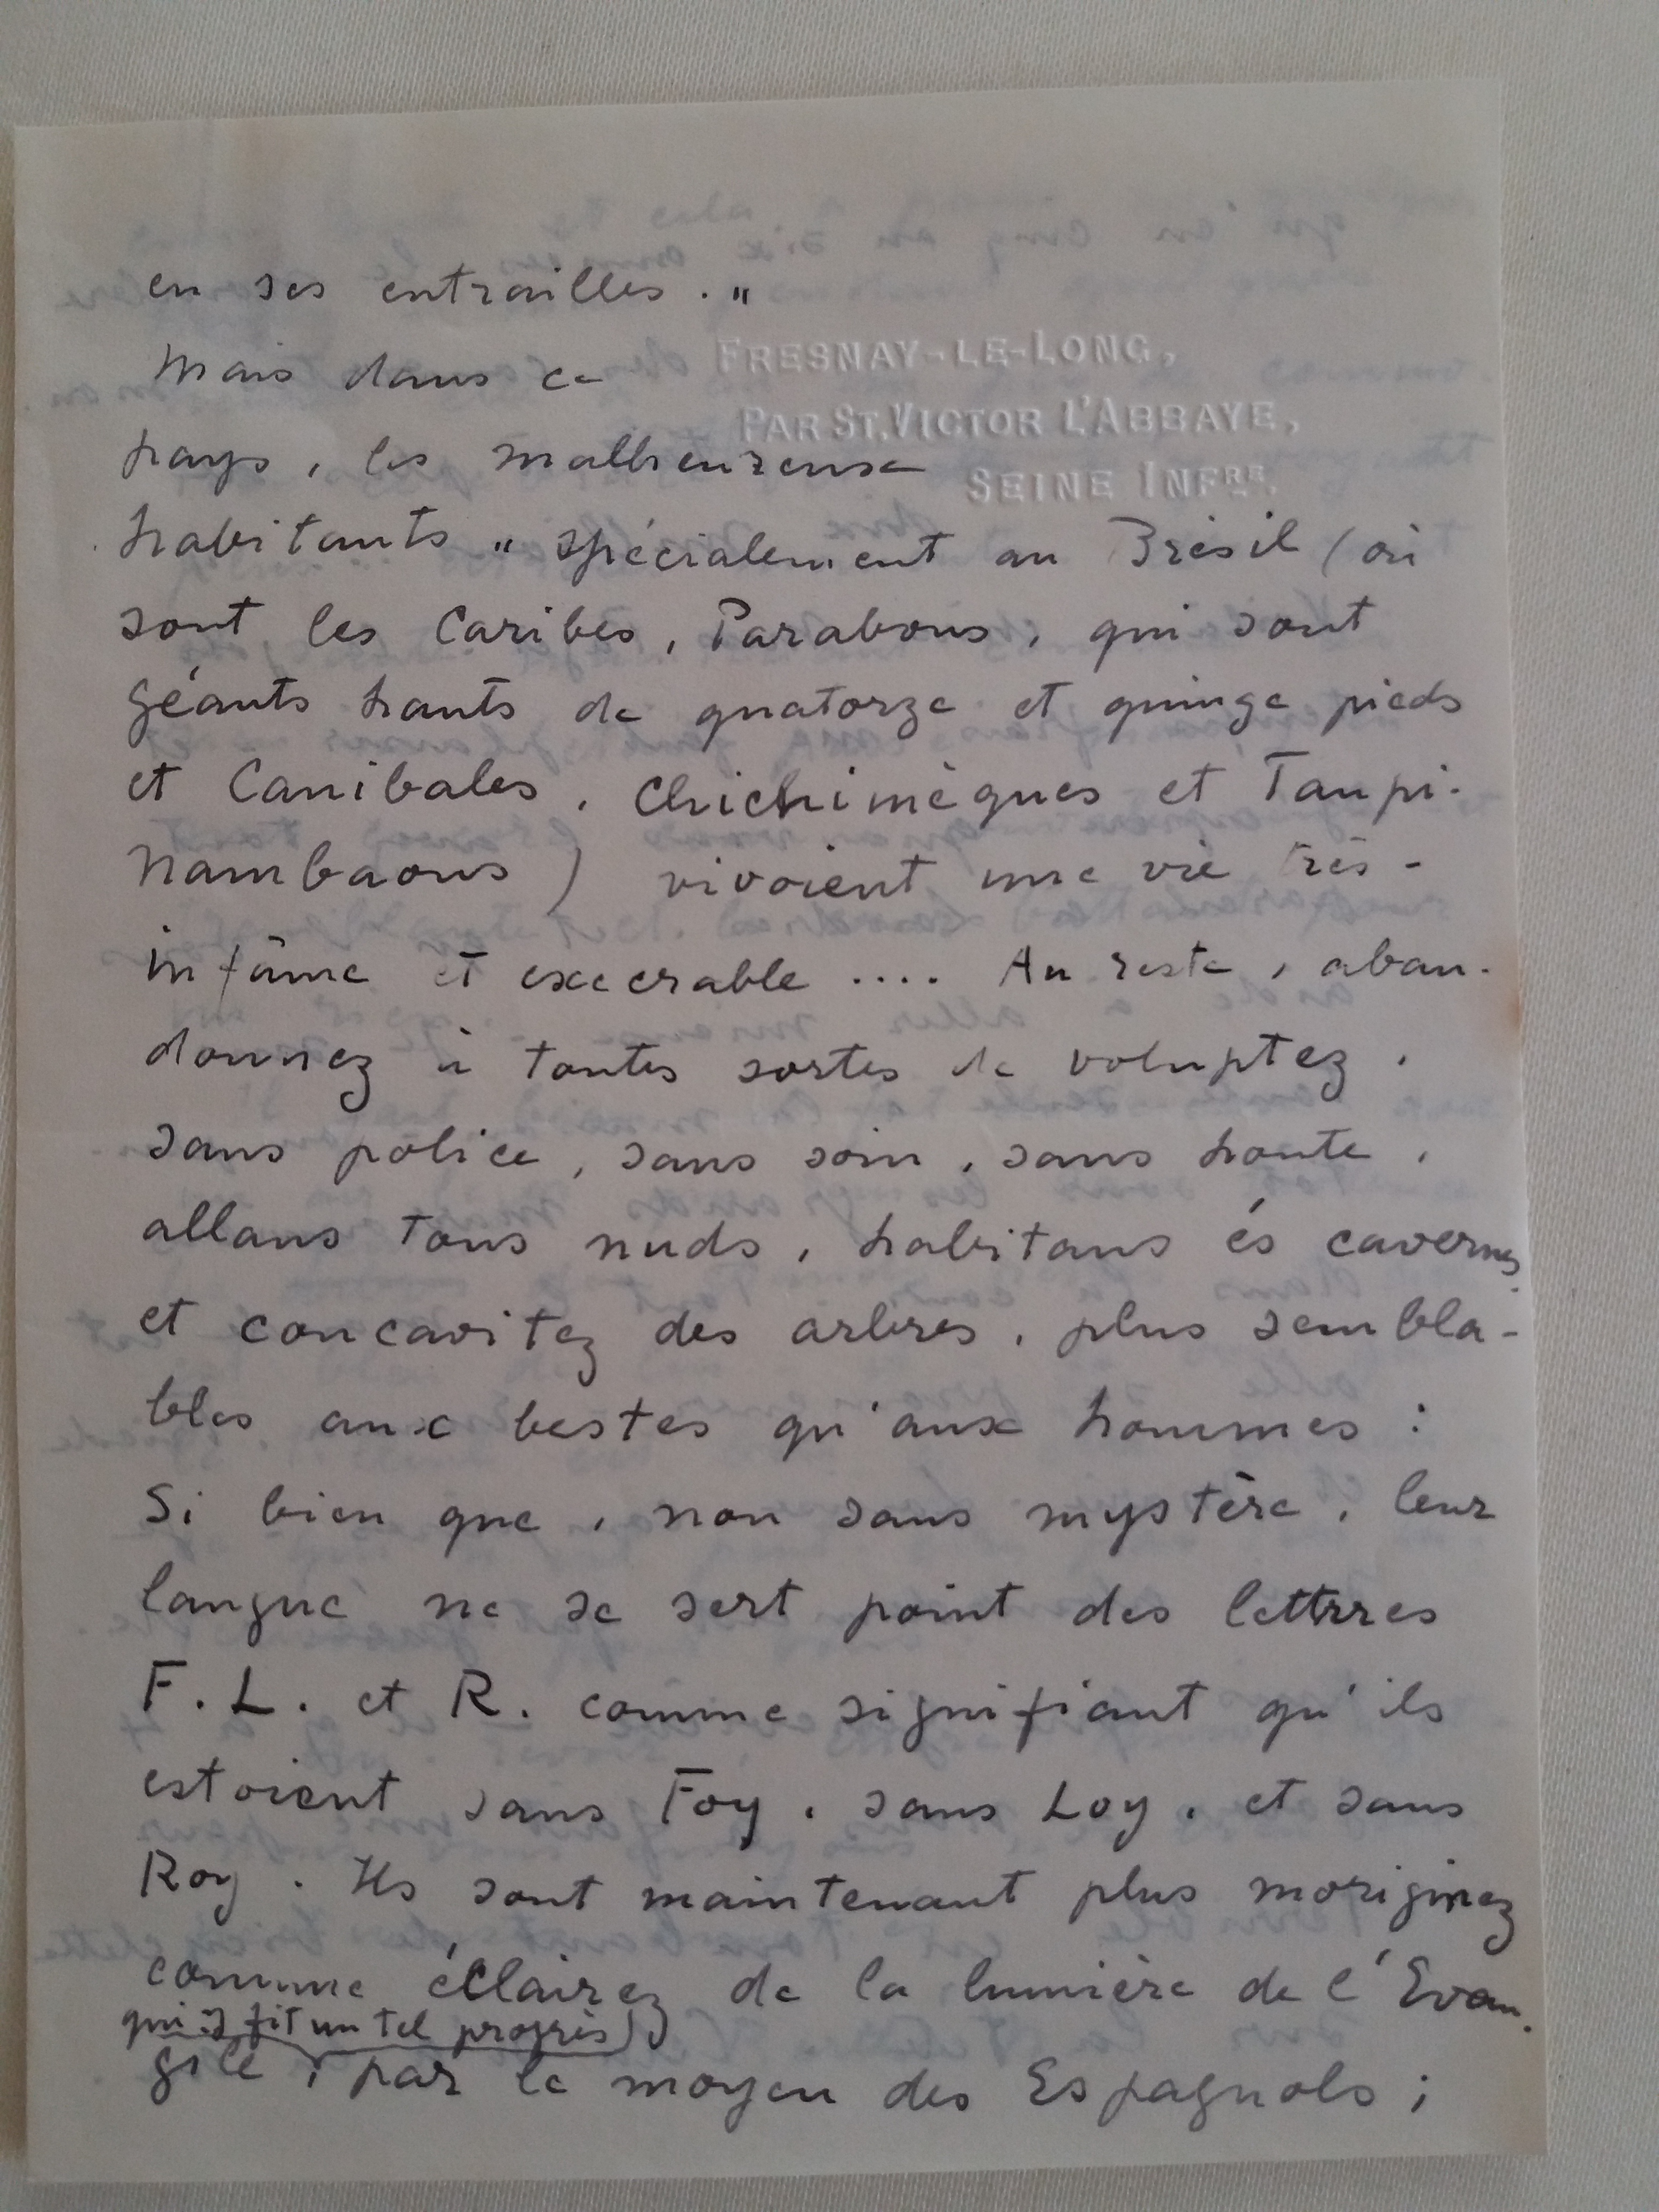 en ses entrailles. "
FRESNAY-LE-LONG,
Mais dans ce
PAR ST. VICTOR L'ABBAYE,
pays, les malheureux
SEINE INFRE.
habitants " spécialement au Brésil (où
sont les Caribes, Parabous, qui sont
géants hauts de quatorze et quinze pieds
et Canibales, Chichimèques et Taupi-
nambaous) vivoient une vie très-
infâme et execrable .... Au reste, aban-
donnez à toutes sortes de voluptez,
sans police, sans soin, sans honte,
allans tous nuds, habitans és cavernes
et concavitez des arbres, plus sembla-
bles aux bestes qu'aux hommes :
Si bien que, non sans mystère, leur
langue ne se sert point des lettres
F. L. et R. comme signifiant qu'ils
estoient sans Foy, sans Loy, et sans
Roy. Ils sont maintenant plus moriginez
comme éclairez de la lumière de l'Evan-
qui y fit un tel progrès)
gile, par le moyen des Espagnols ;